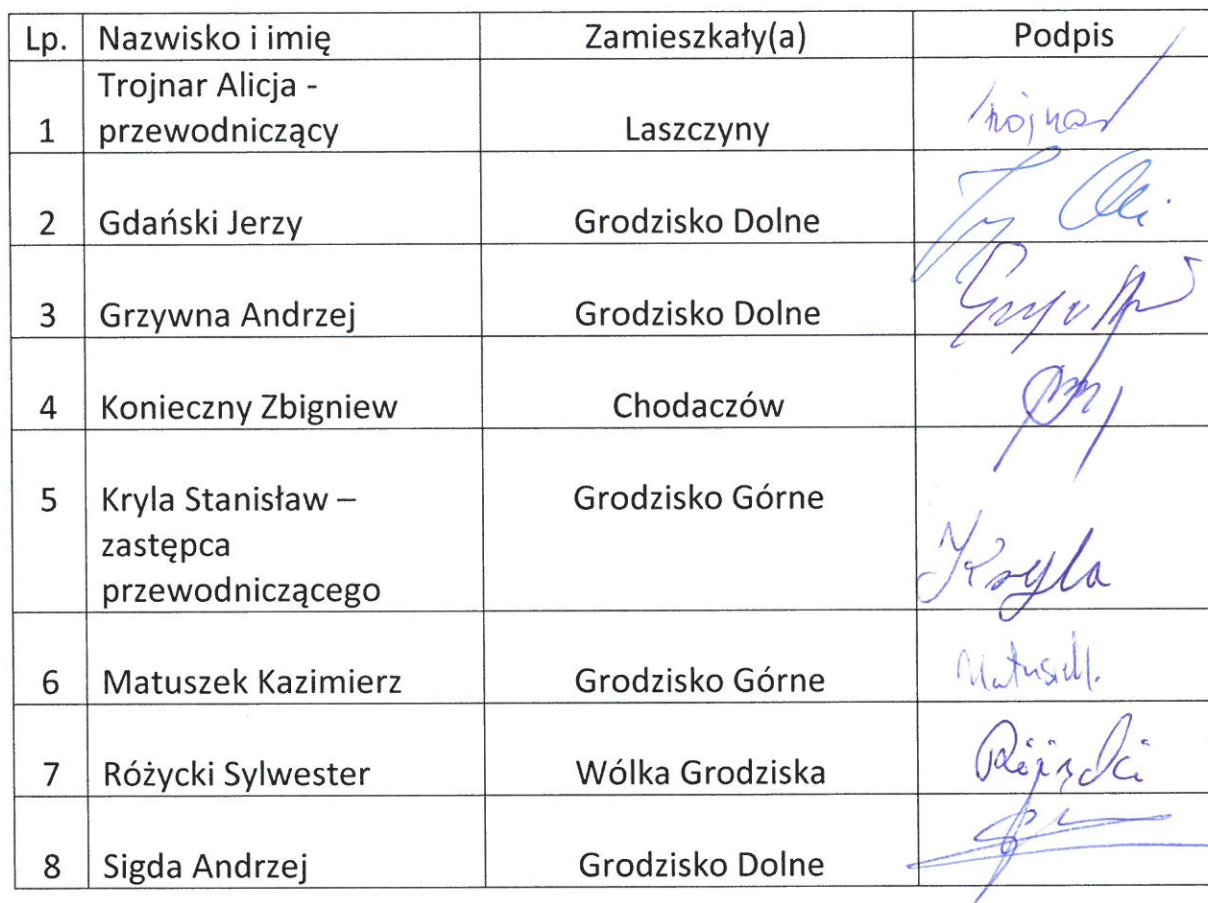 Lp. Nazwisko i imię Zamieszkały(a) Podpis
Trojnar Alicja -
1 przewodniczący Laszczyny Trojnar
2 Gdański Jerzy Grodzisko Dolne
3 Grzywna Andrzej Grodzisko Dolne
4 Konieczny Zbigniew Chodaczów
5 Kryla Stanisław – Grodzisko Górne
zastępca
przewodniczącego Kryla
6 Matuszek Kazimierz Grodzisko Górne
7 Różycki Sylwester Wólka Grodziska
8 Sigda Andrzej Grodzisko Dolne